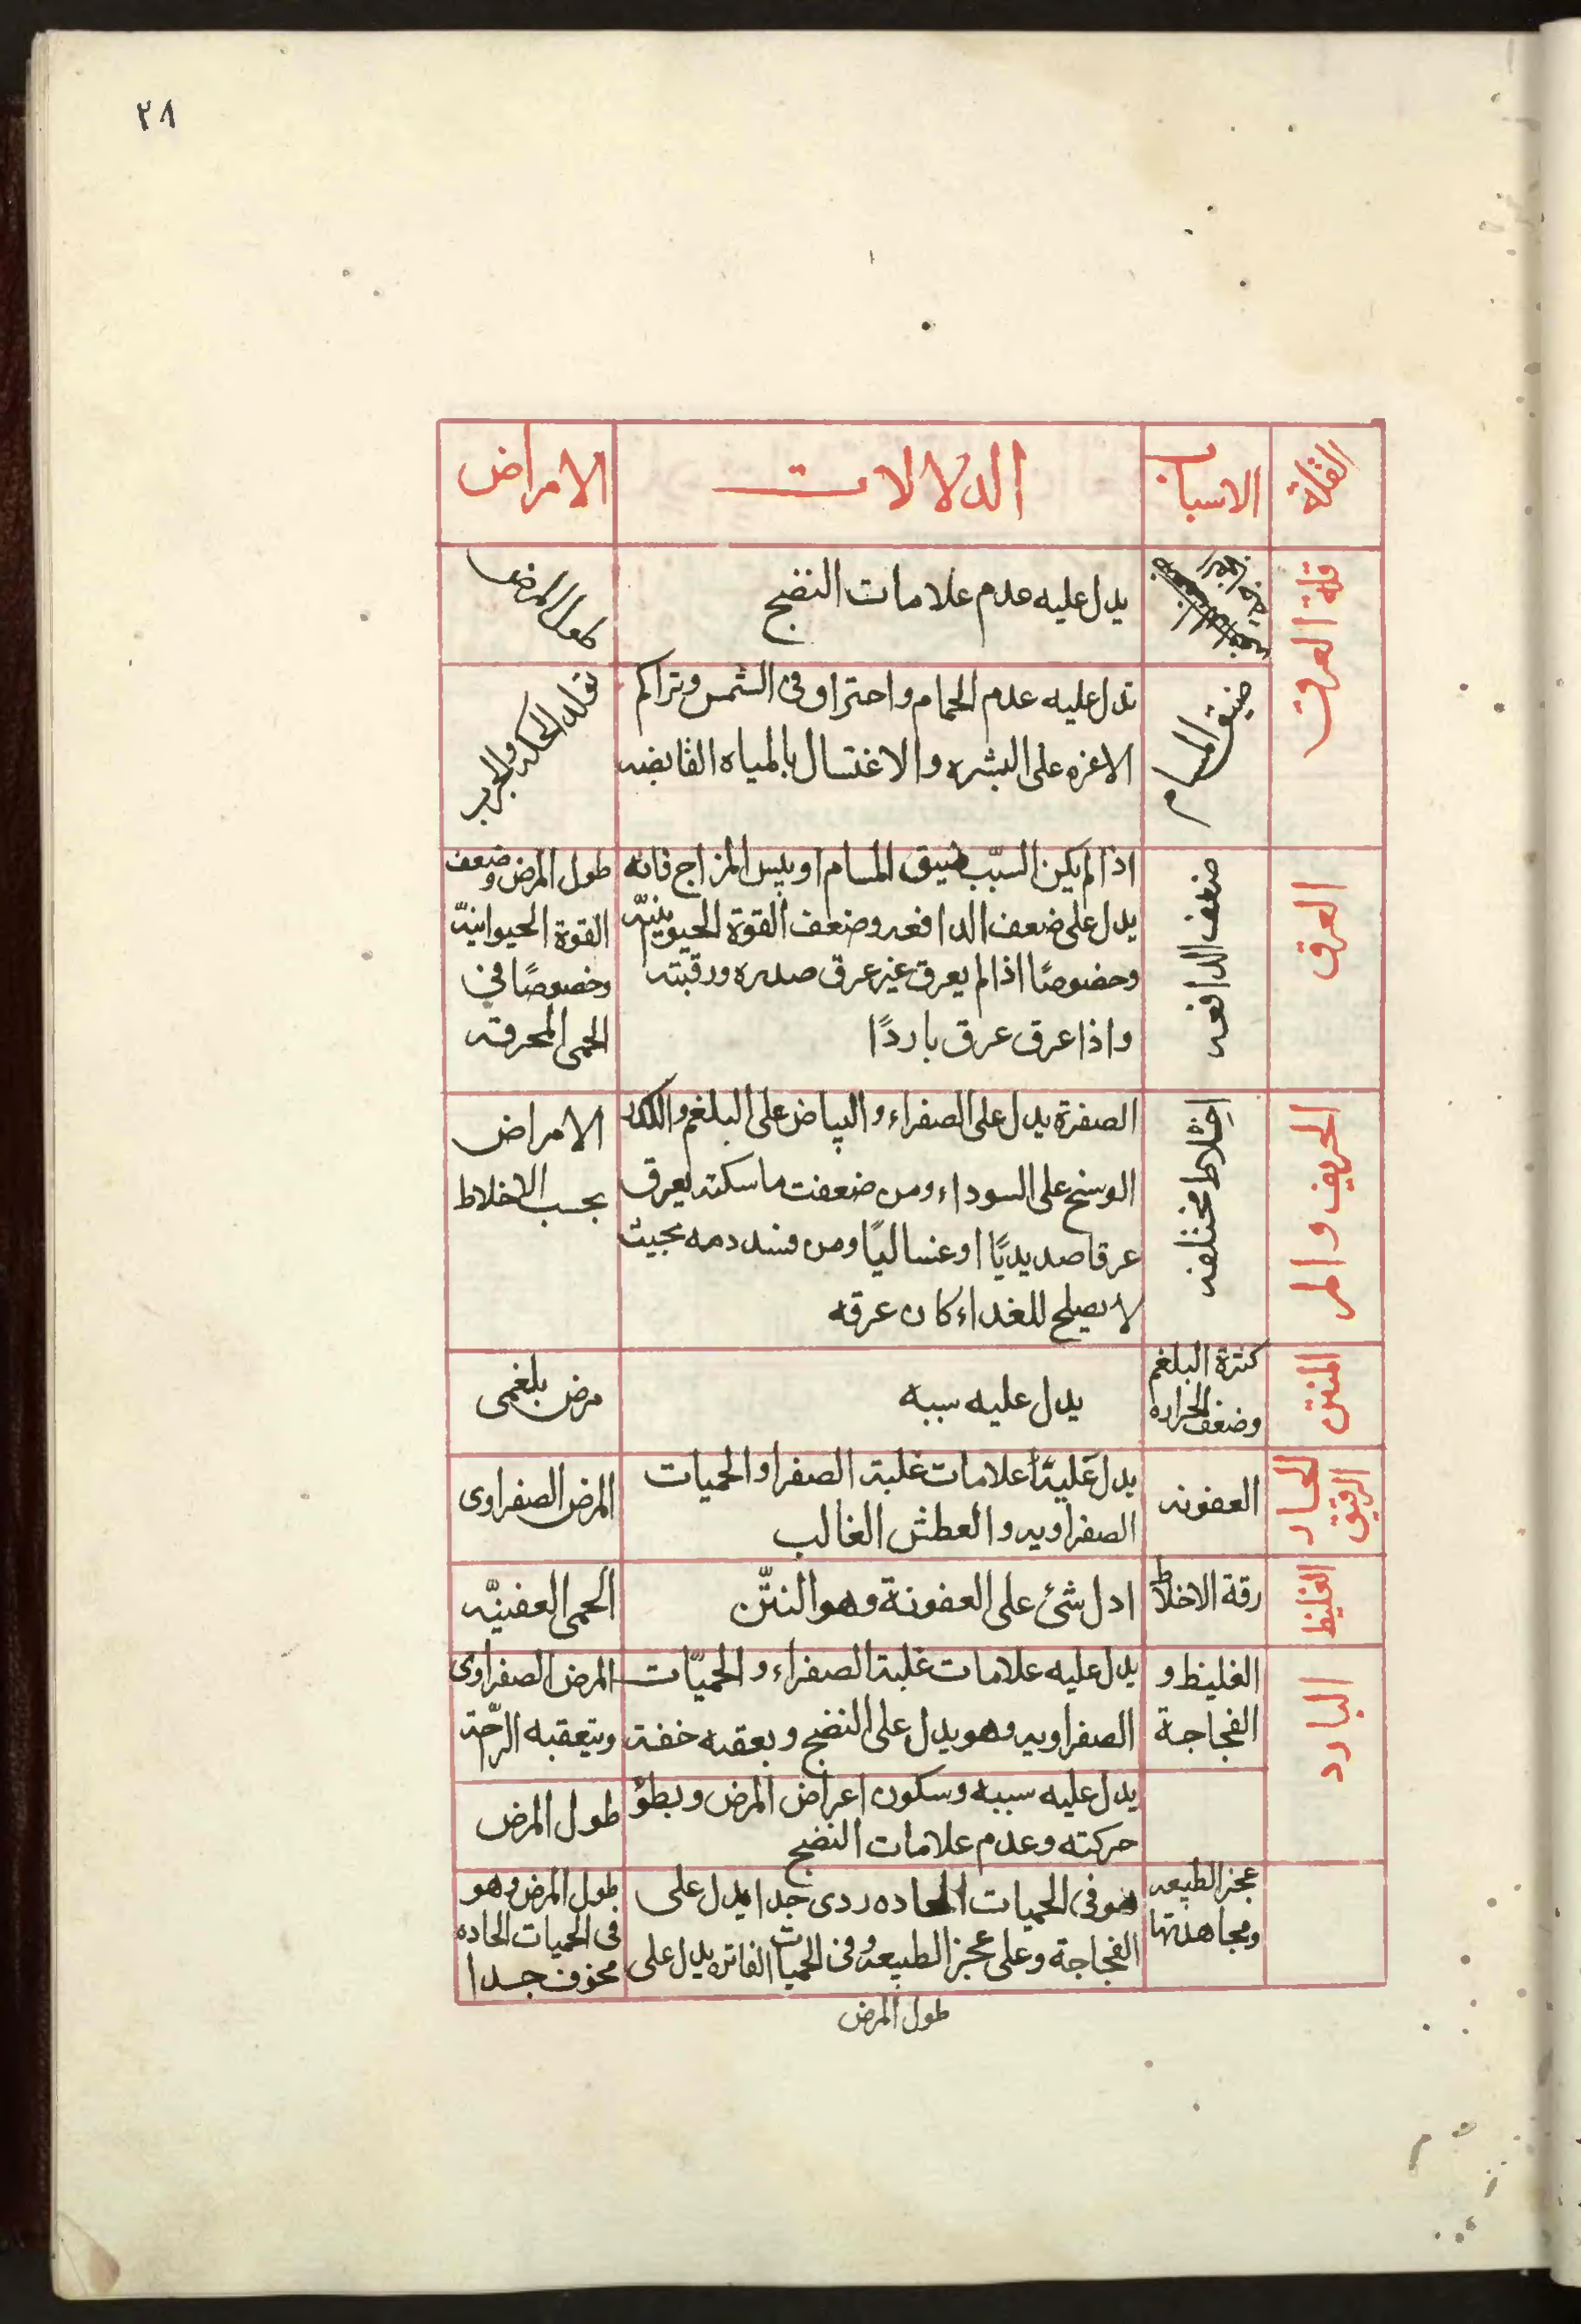 ٢٨
القلة
الاسباب
الدلالات
الامراض
قلة العرق
يدل عليه عدم علامات النضج
طول المرض
ضيق المسام
تدل عليه عدم الحمام واحتراق فى الشمس وتراكم
الاغره على البشره والاغتسال بالمياه القابضه
تولد الحكه والجرب
العرق
ضعف الدافعه
اذا لم يكن السبّب ضيق المسام او يبس المزاج فانه
يدل على ضعف الدافعه وضعف القوة الحيوينيّه
وخصوصًا اذا لم يعرق غير عرق صدره ورقبته
واذا عرق عرق باردًا
طول المرض وضعف
القوة الحيوانيّة
وخصوصًا في
الحمى المحرقه
الحريف والمر
اخلاط مختلفه
الصفرة يدل على الصفراء والبياض على البلغم والكدر
الوسخ على السوداء ومن ضعفت ماسكته يعرق
عرقا صديديًا او غساليًا ومن فسد دمه بحيث
لا يصلح للغداء كان عرقه
الامراض
بحسب الاخلاط
المنتن
كثرة البلغم
وضعف الحراره
يدل عليه سببه
مرض بلغمى
الحار
الرقيق
العفونه
يدل عليه علامات غلبة الصفرا والحميات
الصفراويه والعطش الغالب
المرض الصفراوى
الغليظ
رقة الاخلاط
ادل شئ على العفونة وهو النتّن
الحمى العفينيّه
البارد
الغليظ و
الفجاجة
يدل عليه علامات غلبة الصفراء والحميّات
الصفراويه وهو يدل على النضج ويعقبه خفة
المرض الصفراوى
ويتعقبه الرّاحة
يدل عليه سببه وسكون اعراض المرض وبطؤ
حركته وعدم علامات النضج
طول المرض
عجز الطبيعه
ومجاهدتها
هو فى الحميات الحاده ردى جدا يدل على
الفجاجة وعلى عجز الطبيعه وفى الحميات الفاتره يدل على
طول المرض
طول المرض وهو
فى الحميات الحاده
مخوف جدا